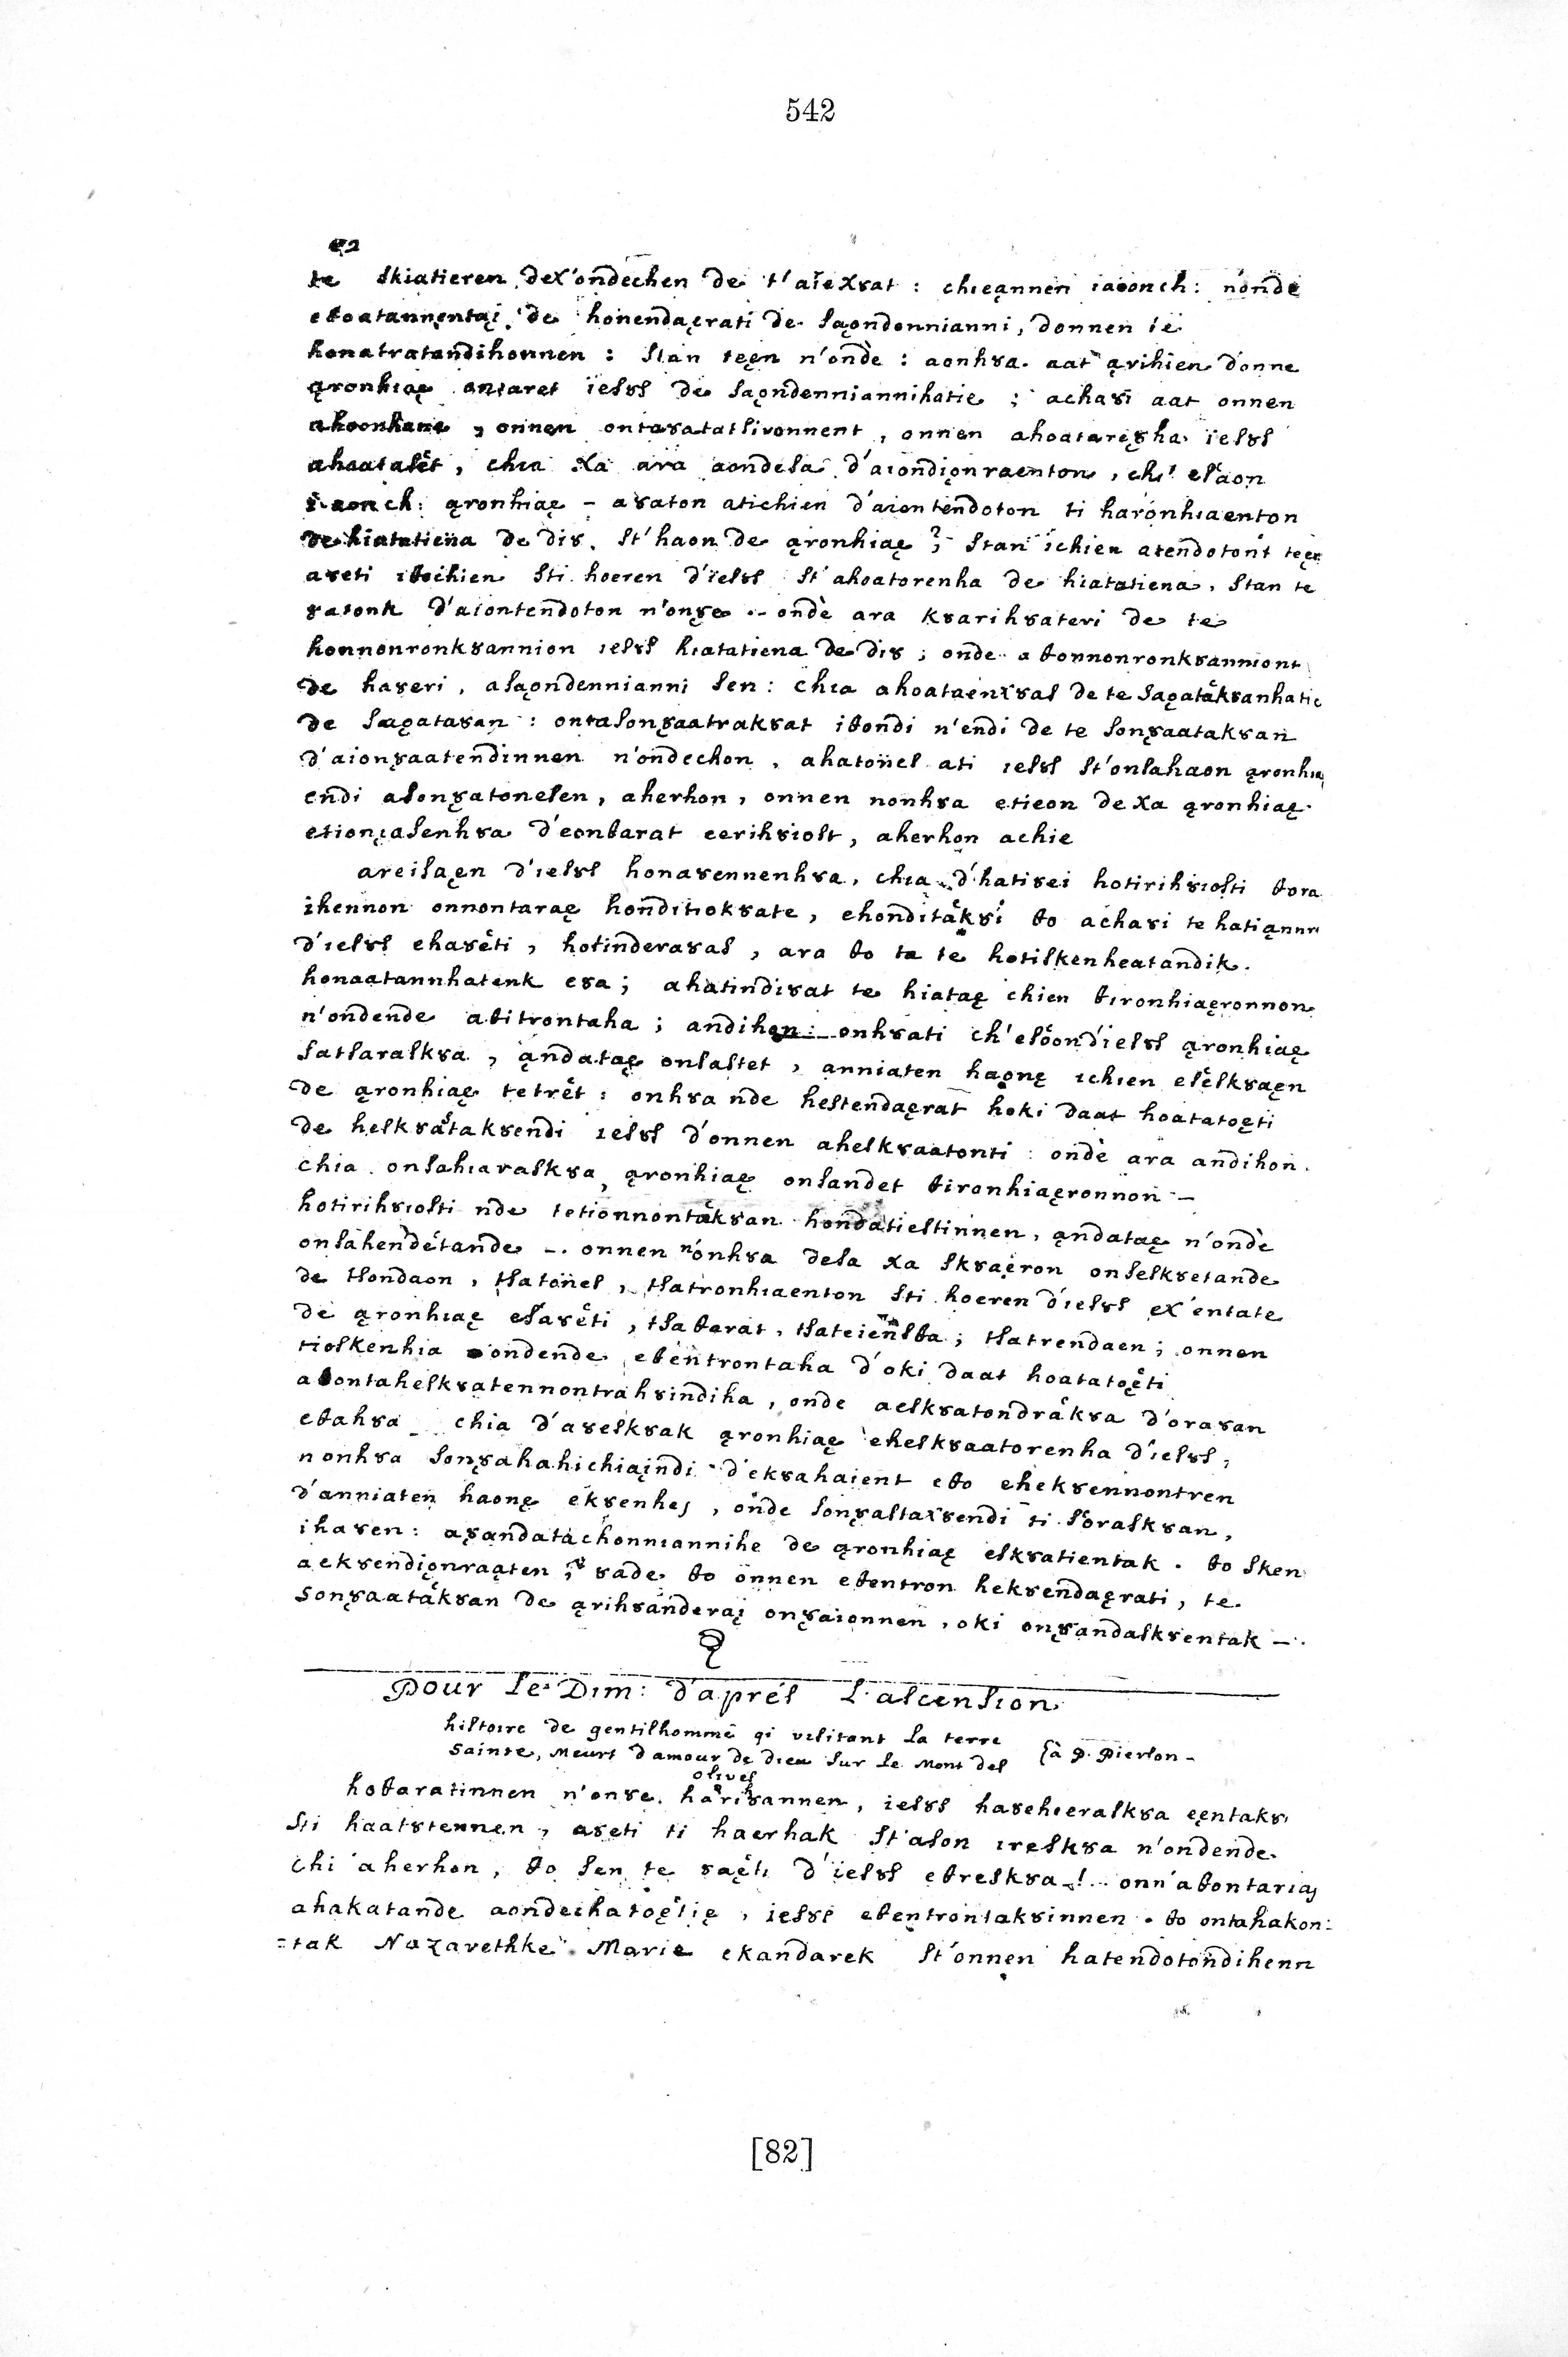 542
te skiatieren dex'ondechen de t'aïexȣat : chieąnnen iaoonch: n'onde
eθoatannęntaį de honendaęrati de saǫndennianni, donnen te
honatratandihonnen : stan tęęn n'ondè : aonhȣa. aat ąrihien d'onne
ąronhiaę ontaret ïesȣs de saǫndenniannihatie ; achaȣi aat onnen
ahoonhane , onnen ontaȣatatsiȣonnent , onnen ahoataręȣha ïesȣs
ahaatasët, chia xa ara aondesa d'aiondiǫnraenton, chi' es'aon
iaonch: ąronhiaę - aȣaton atichien d'aientendoton ti haronhiaenton
de hiatatiena de diȣ. st'haon de ąronhiaę ? ; stan ichien atendotont tęęn
aȣeti iθochien sti hoeren d'ïesȣs st'ahoatorenha de hiatatiena. stan te
ȣatonk d'aiontendoton n'onȣe - ondè ara kȣarihȣateri de te
honnonronkȣannion iesȣs hiatatiena de diȣ ; onde a θonnonronkȣanniont
de haȣeri, asaǫndennianni sen : chia ahoataenxȣas de te saǫatäkȣanhatie
de saǫataȣan : ontasonȣaatrakȣat iθondi n'endi de te sonȣaatakȣan
d'aionȣaatendinnen n'ondechon, ahatonës ati iesȣs st'onsahaon ąronhia
endi asonȣatonesen, aherhon, onnen nonhȣa etieon de xa ąronhiaę
etionęasenhȣa d'eonθarat eerihȣiost, aherhon achie
areisaęn d'iesȣs honaȣennenhȣa, chia d'hatiȣei hotirihȣiosti θora
ihennon onnontaraę honditiokȣate, ehonditäkȣi θo achaȣi te hatiąnnr
d'iesȣs ehaȣëti, hotinderaȣas, ara θo ta te hotiskenheatandik.
honaatannhatenk eȣa ; ahatindiȣat te hiataę chien θironhiaęronnon
n'ondende aθitrontaha ; andihon: onhȣati ch'esöond'iesȣs ąronhiaę
satsaraskȣa, ąndataę onsastet, anniaten haonę ichien esëskȣaęn
de ąronhiaę tetrët : onhȣa nde hestendaęrat hoki daat hoatatoęti
de heskȣätakȣendi iesȣs d'onnen aheskȣaatonti : ondè ara andihon.
chia onsahiaraskȣa, ąronhiaę onsandet θironhiaęronnon -
hotirihȣiosti nde tetionnontäkȣan hondatiestinnen, ąndataę n'ondè
onsahendëtande -. onnen n'onhȣa desa xa skȣaęron onseskȣetande
de tsondaon, tsatonës, tsatronhiaenton sti hoeren d'iesȣs ex'entate
de ąronhiaę esaȣëti, tsaθarat, tsateiensθa ; tsatrendaen ; onnen
tioskenhia ondende eθentrontaha d'oki daat hoatatoęti
aθontaheskȣatennontrahȣindiha, onde aeskȣatondräkȣa d'oraȣan
eθahȣa - chia d'aȣeskȣak ąronhiaę eheskȣaatorenha d'iesȣs,
nonhȣa sonȣahahichiaįndi d'ekȣahaient eθo ehekȣennontren
d'anniaten haonę ekȣenhej, onde sonȣastaxȣendi ti soraskȣan,
ihaȣen : aȣandatachonniannihe de ąronhiaę eskȣatientak. θo sken
aekȣendiǫnraąten ; ȣade θo onnen eθentron hekȣendaęrati, te
sonȣaatäkȣan de ąrihȣanderaį onȣaionnen, oki onȣandaskȣentak -.
pour le Dim: d'aprés l'ascension
histoire de gentilhomme qi visitant la terre
sainte, meurt d'amour de dieu sur le mont des
olives
{à P. Pierson -
hoθaratinnen n'onȣe. harihȣannen, iesȣs haȣehieraskȣa ęęntakȣi
sti haatȣtennen, aȣeti ti haerhak st'ason ireskȣa n'ondende
chi aherhon, θo sen te ȣaëti d'iesȣs eθreskȣa ! onn'aθontariaj
ahakatande aondechatoętię, iesȣs eθentrontakȣinnen. θo ontahakon:
=tak Nazarethke Marie ekandarek st'onnen hatendotondihenn
[82]